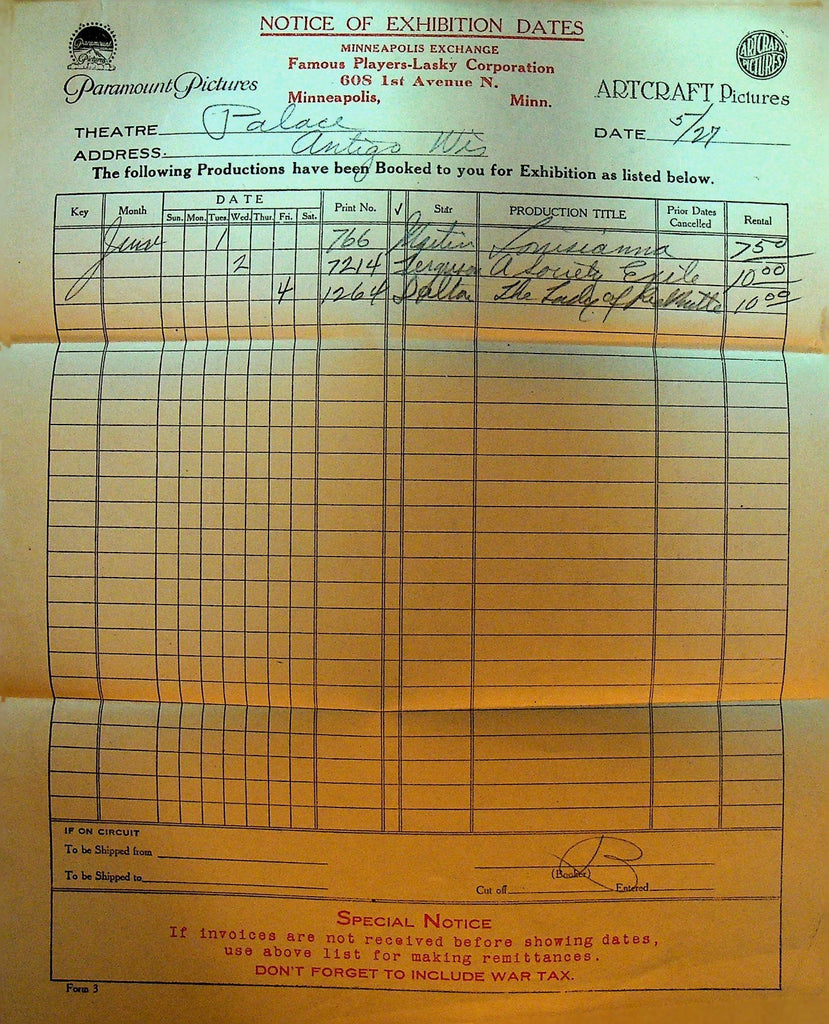 NOTICE OF EXHIBITION DATES
MINNEAPOLIS EXCHANGE
Famous Players-Lasky Corporation
608 1st Avenue N.
Minneapolis, Minn.
Paramount Pictures
Paramount Pictures
ARTCRAFT PICTURES
ARTCRAFT Pictures
THEATRE Palace
DATE 5/27
ADDRESS. Antigo Wis
The following Productions have been Booked to you for Exhibition as listed below.
Key Month DATE Print No. ✓ Star PRODUCTION TITLE Prior Dates Cancelled Rental
Sun. Mon. Tues. Wed. Thur. Fri. Sat.
June 1 766 Martin Louisianna 7 50
2 7214 Ferguson A Society Exile 10 00
4 1264 Dalton The Lady of 10 00
IF ON CIRCUIT
To be Shipped from
To be Shipped to
B
(Booker)
Cut off Entered
SPECIAL NOTICE
If invoices are not received before showing dates,
use above list for making remittances.
DON'T FORGET TO INCLUDE WAR TAX.
Form 3